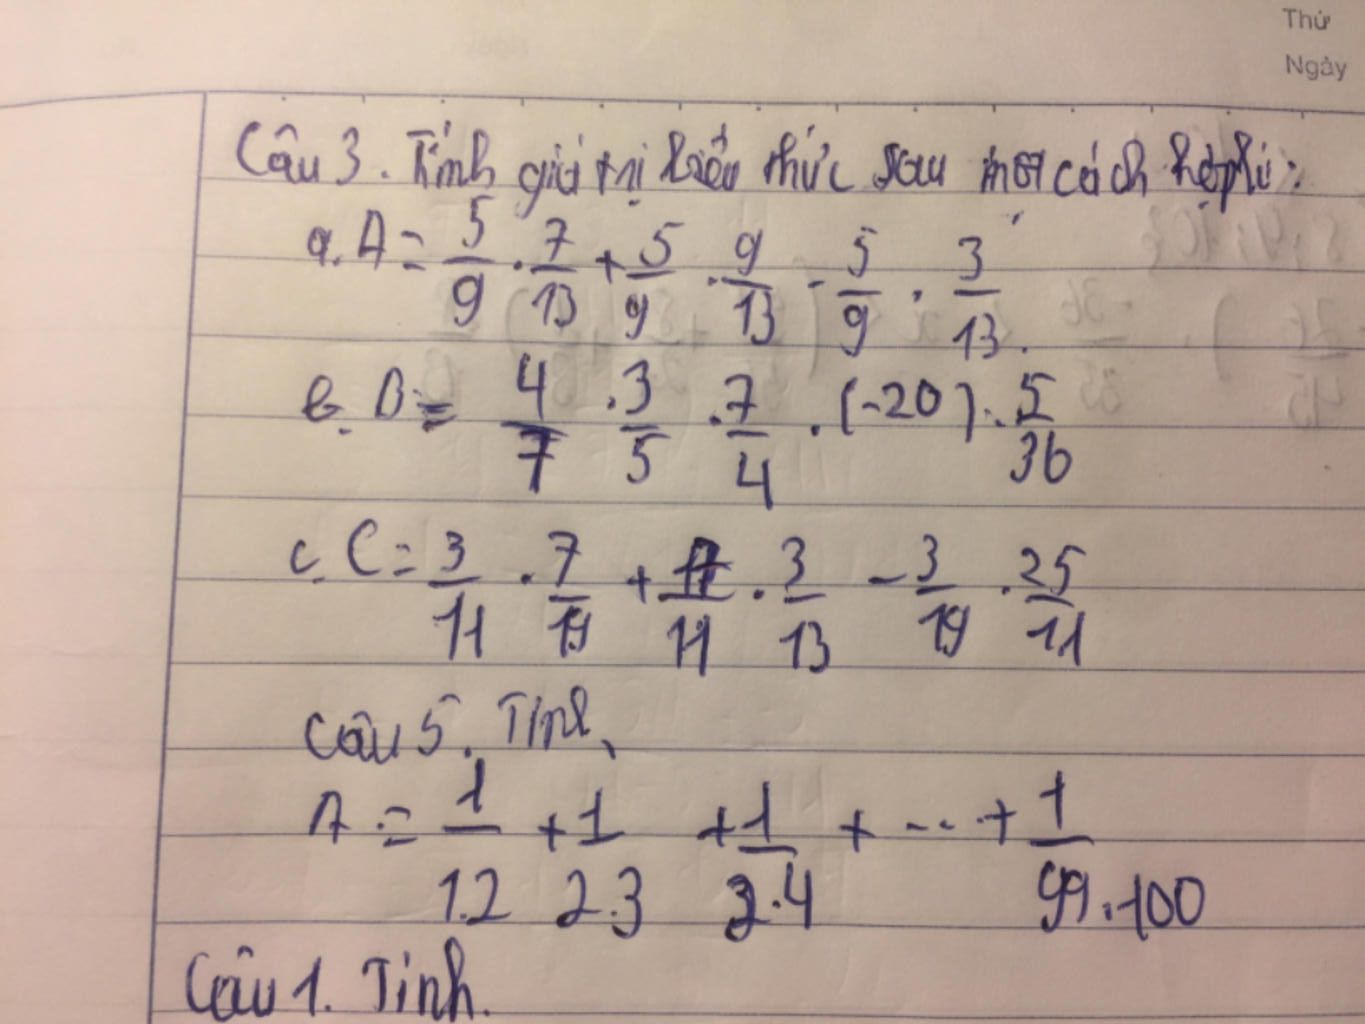 Thứ
Ngày
Câu 3. Tính giá trị biểu thức sau một cách hợp lí:
a. A = 5/9 . 7/13 + 5/9 . 9/13 - 5/9 . 3/13.
b. B = 4/7 . 3/5 . 7/4 . (-20) . 5/36
c. C = 3/11 . 7/19 + /11 . 3/13 - 3/19 . 25/11
Câu 5. Tính
A = 1/1.2 + 1/2.3 + 1/3.4 + ... + 1/99.100
Câu 1. Tính.